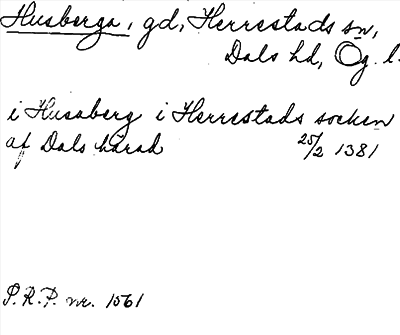 Husberga, gd, Herrestads sn,
Dals hd, Ög. l.
i Husaberg i Herrestads socken
af Dals härad 25/2 1381
P.R.P. nr. 1561